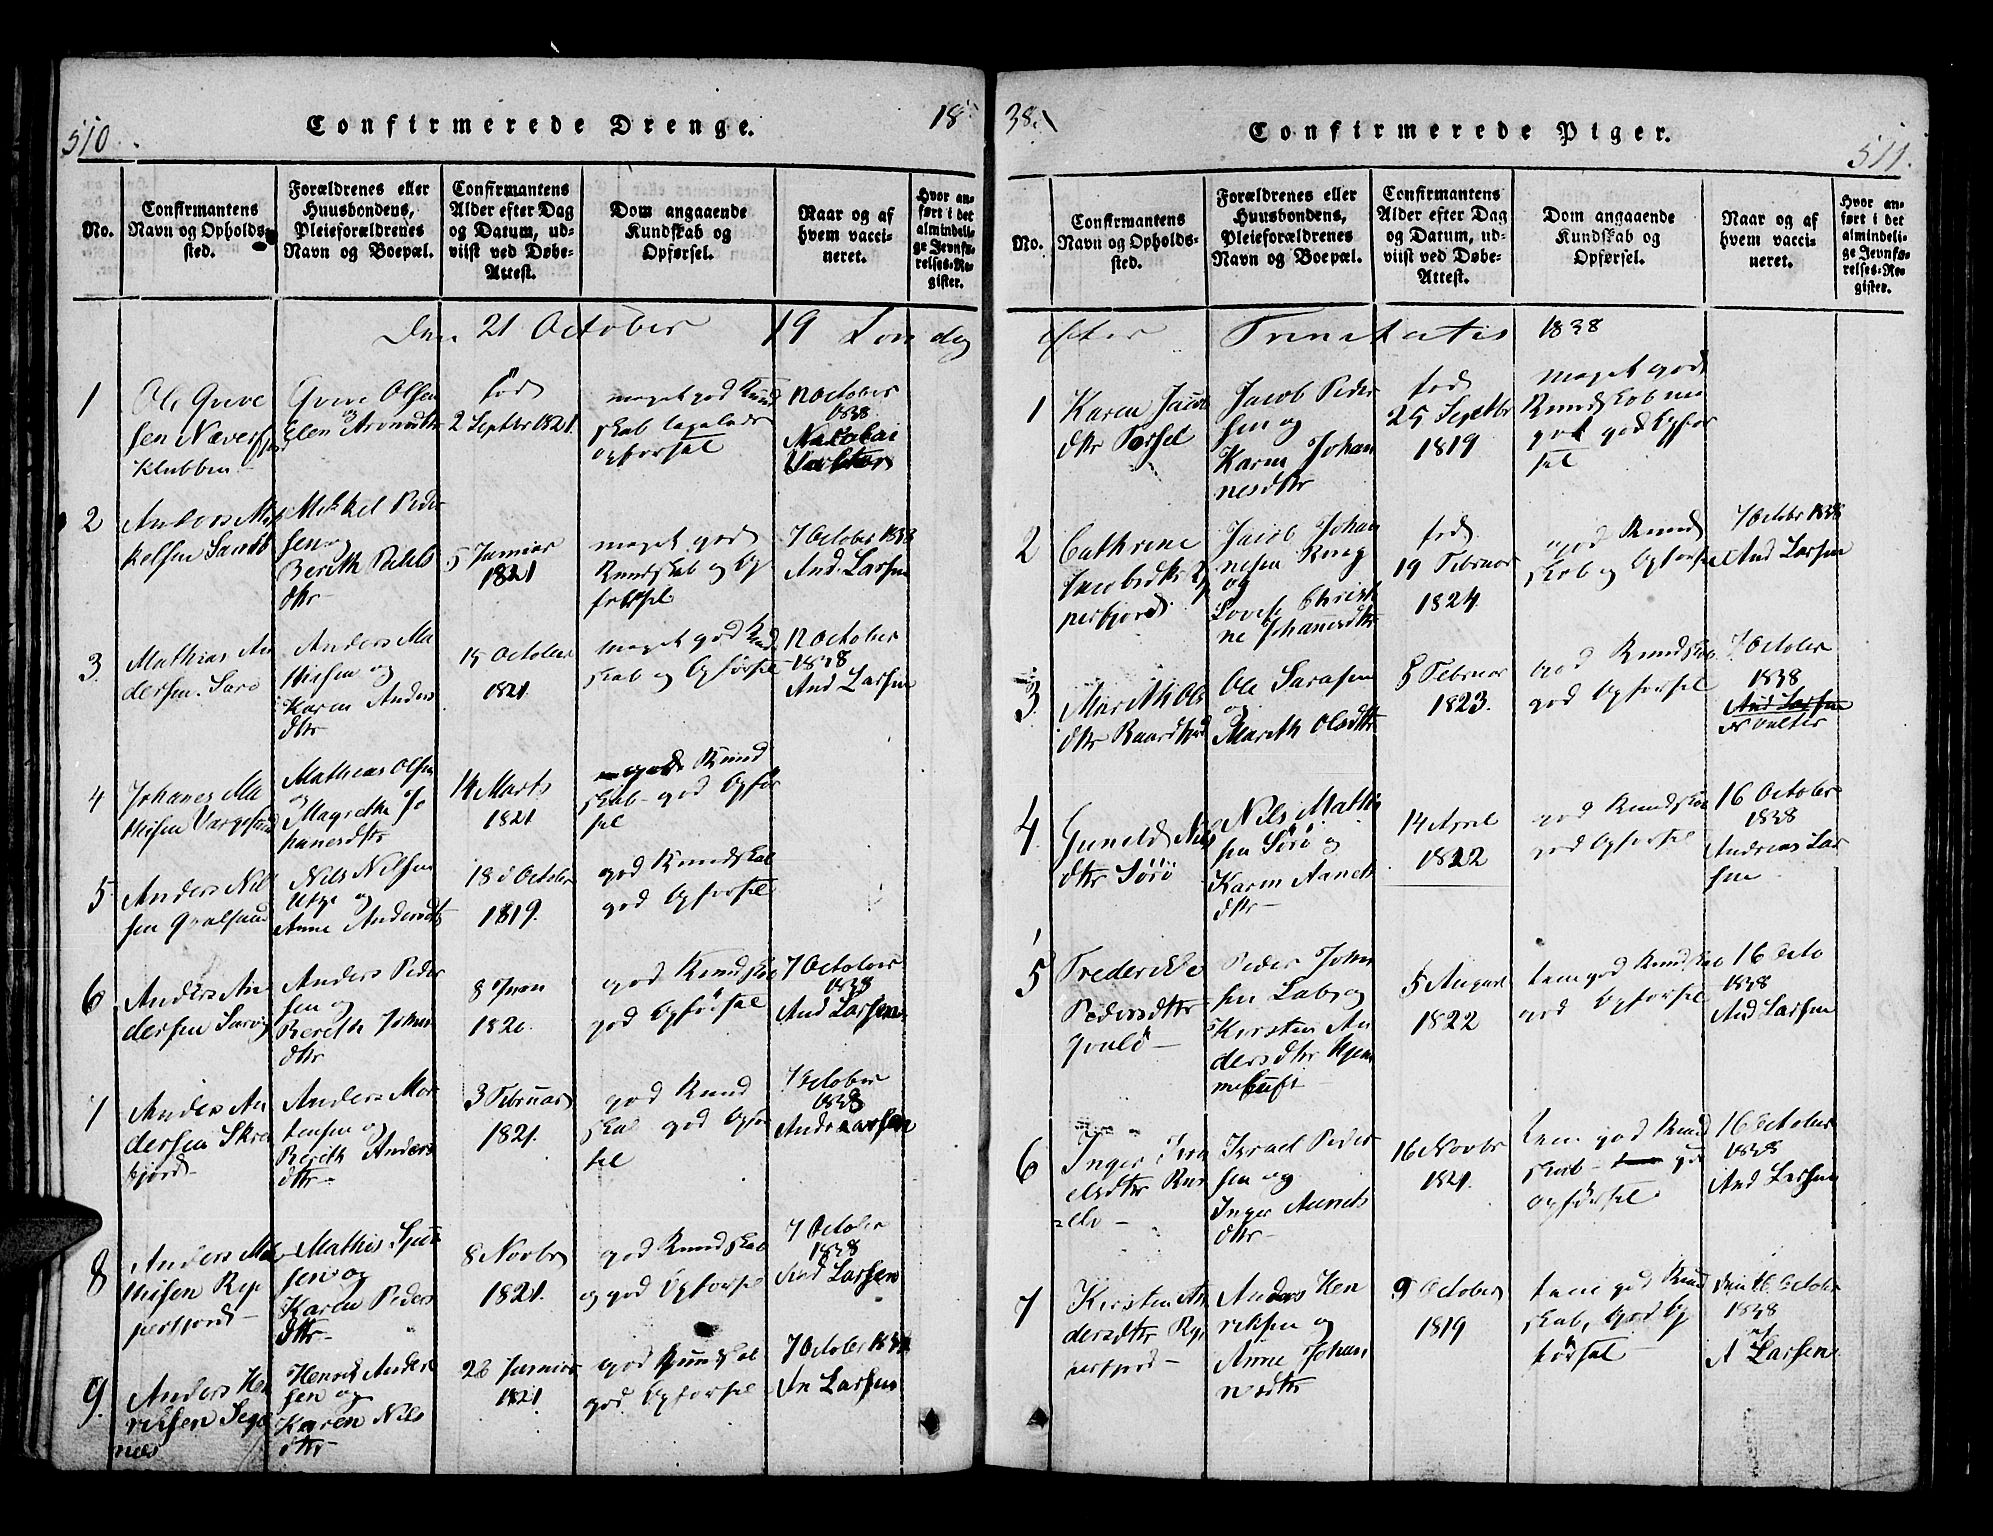 510
Confirmerede Drenge.
18
No.
Confirmantens
Navn og Opholds-
sted.
Forældrenes eller
Huusbondens,
Pleieforældrenes
Navn og Boepæl.
Confirmantens
Alder efter Dag
og Datum, ud-
viist ved Døbe-
Attest.
Dom angaaende
Kundskab og
Opførsel.
Naar og af
hvem vacci-
neret.
Hvor an-
ført i det
almindeli-
ge Jevnfø-
relses-Re-
gister.
Den 21 October 19 Søndag
1
Ole Greve
sen Næverf
klubben
Greve Olsen
og
Elen Arondtr
fød
2 Septbr 1821.
meget god Kund
skab
opførsel
12 October
1838
2
Anders Mik
kelsen
Mikkel Peder
sen og
Berith Peders
dtr
5 Januar
1821
meget god
Kundskab og Op
førsel
7 October 1838
And. Larsen
3.
Mathias An
dersen
Anders Ma
thisen og
Karen Anders
dtr
15 October
1821.
meget god Kund
skab og Opførsel
12 October
1838
And Larsen
4
Johanes Ma
thisen Vargsund
Mathias Olsen
og
Magrethe Jo
hanesdtr
14 Marts
1821
god Kund
skab god Opfør
sel
5
Anders Nil
sen Qvalsund
Nils Nilsen
og
Anne Andersdtr
18 October
1819.
god Kundskab
god Opførsel
6
Anders An
dersen
Anders Peder
sen og
Berith Johns
dtr
8 Juni
1820.
god Kundskab
god Opførsel
7 October
1838
And Larsen
7
Anders An
dersen
fjord
Anders Mor
tensen og
Berith Anders
dtr
3 Februar
1821.
god Kund
skab god Opfør
sel
7 October
1838
And Larsen
8
Anders Ma
thisen Rep
perfjord
Mathis
sen og
Karen Peders
dtr
8 Novbr
1821.
god Kundskab
og god Opførsel
7 October
1838
And Larsen
9.
Anders Hen
riksen
næs
Henrik Ander
sen og
Karen Nils
dtr
26 Januar
1821
god Kundskab
god Opførsel
7 October 1838
An Larsen
38.
Confirmerede Piger.
511.
No.
Confirmantens
Navn og Opholds-
sted.
Forældrenes eller
Huusbondens,
Pleieforældrenes
Navn og Boepæl.
Confirmantens
Alder efter Dag
og Datum, ud-
viist ved Døbe-
Attest.
Dom angaaende
Kundskab og
Opførsel.
Naar og af
hvem vacci-
neret.
Hvor an-
ført i det
almindeli-
ge Jevnfø-
relses-Re-
gister.
efter Trinitatis 1838
1
Karen Jacob
dtr Porsel
Jacob Peder
sen og
Karen Johan
nesdtr
fød
25 Septbr
1819
meget god
Kundskab me
get god Opfør
sel
2
Cathrine
Jacobsdtr Re
perfjord
Jacob Johan
nesen Ring
og
Lovise Christi
ne Johanesdtr
fød
19 Februar
1824.
god Kund
skab og Opførsel
7 Octobr 1838
And Larsen
3
Marith Ols
dtr Baardfjord
Ole Sarasen
og
Marith Olsdtr
8 Februar
1823.
god Kundskab
god Opførsel
7 October
1838
And Larsen
4
Guneld Nils
dtr Sørø
Nils Mathi
sen Sørø og
Karen Aanets
dtr
14 April
1822
god Kundskab
god Opførsel
16 October
1838
Andreas Lar
sen
5
Frederikke
Pedersdtr
Peder John
sen Labo og
Kirsten An
dersdtr Hjem
meluft
5 August
1822
tem god Kundskab
god Opførsel
16 Octo
1838
And Larsen
6
Inger Isra
elsdtr Rus
elv
Israel Peder
sen og
Inger Aanets
dtr
16 Novbr
1821.
tem god Kund
skab god
opførsel
16 October
1838
And Larsen
7
Kirsten An
dersdtr Rep
perfjord
Anders Hen
riksen og
Anne Johan
nesdtr
9 October
1819
tem god Kund
skab, god Op
førsel
Den 16 October
1838
af
A Larsen